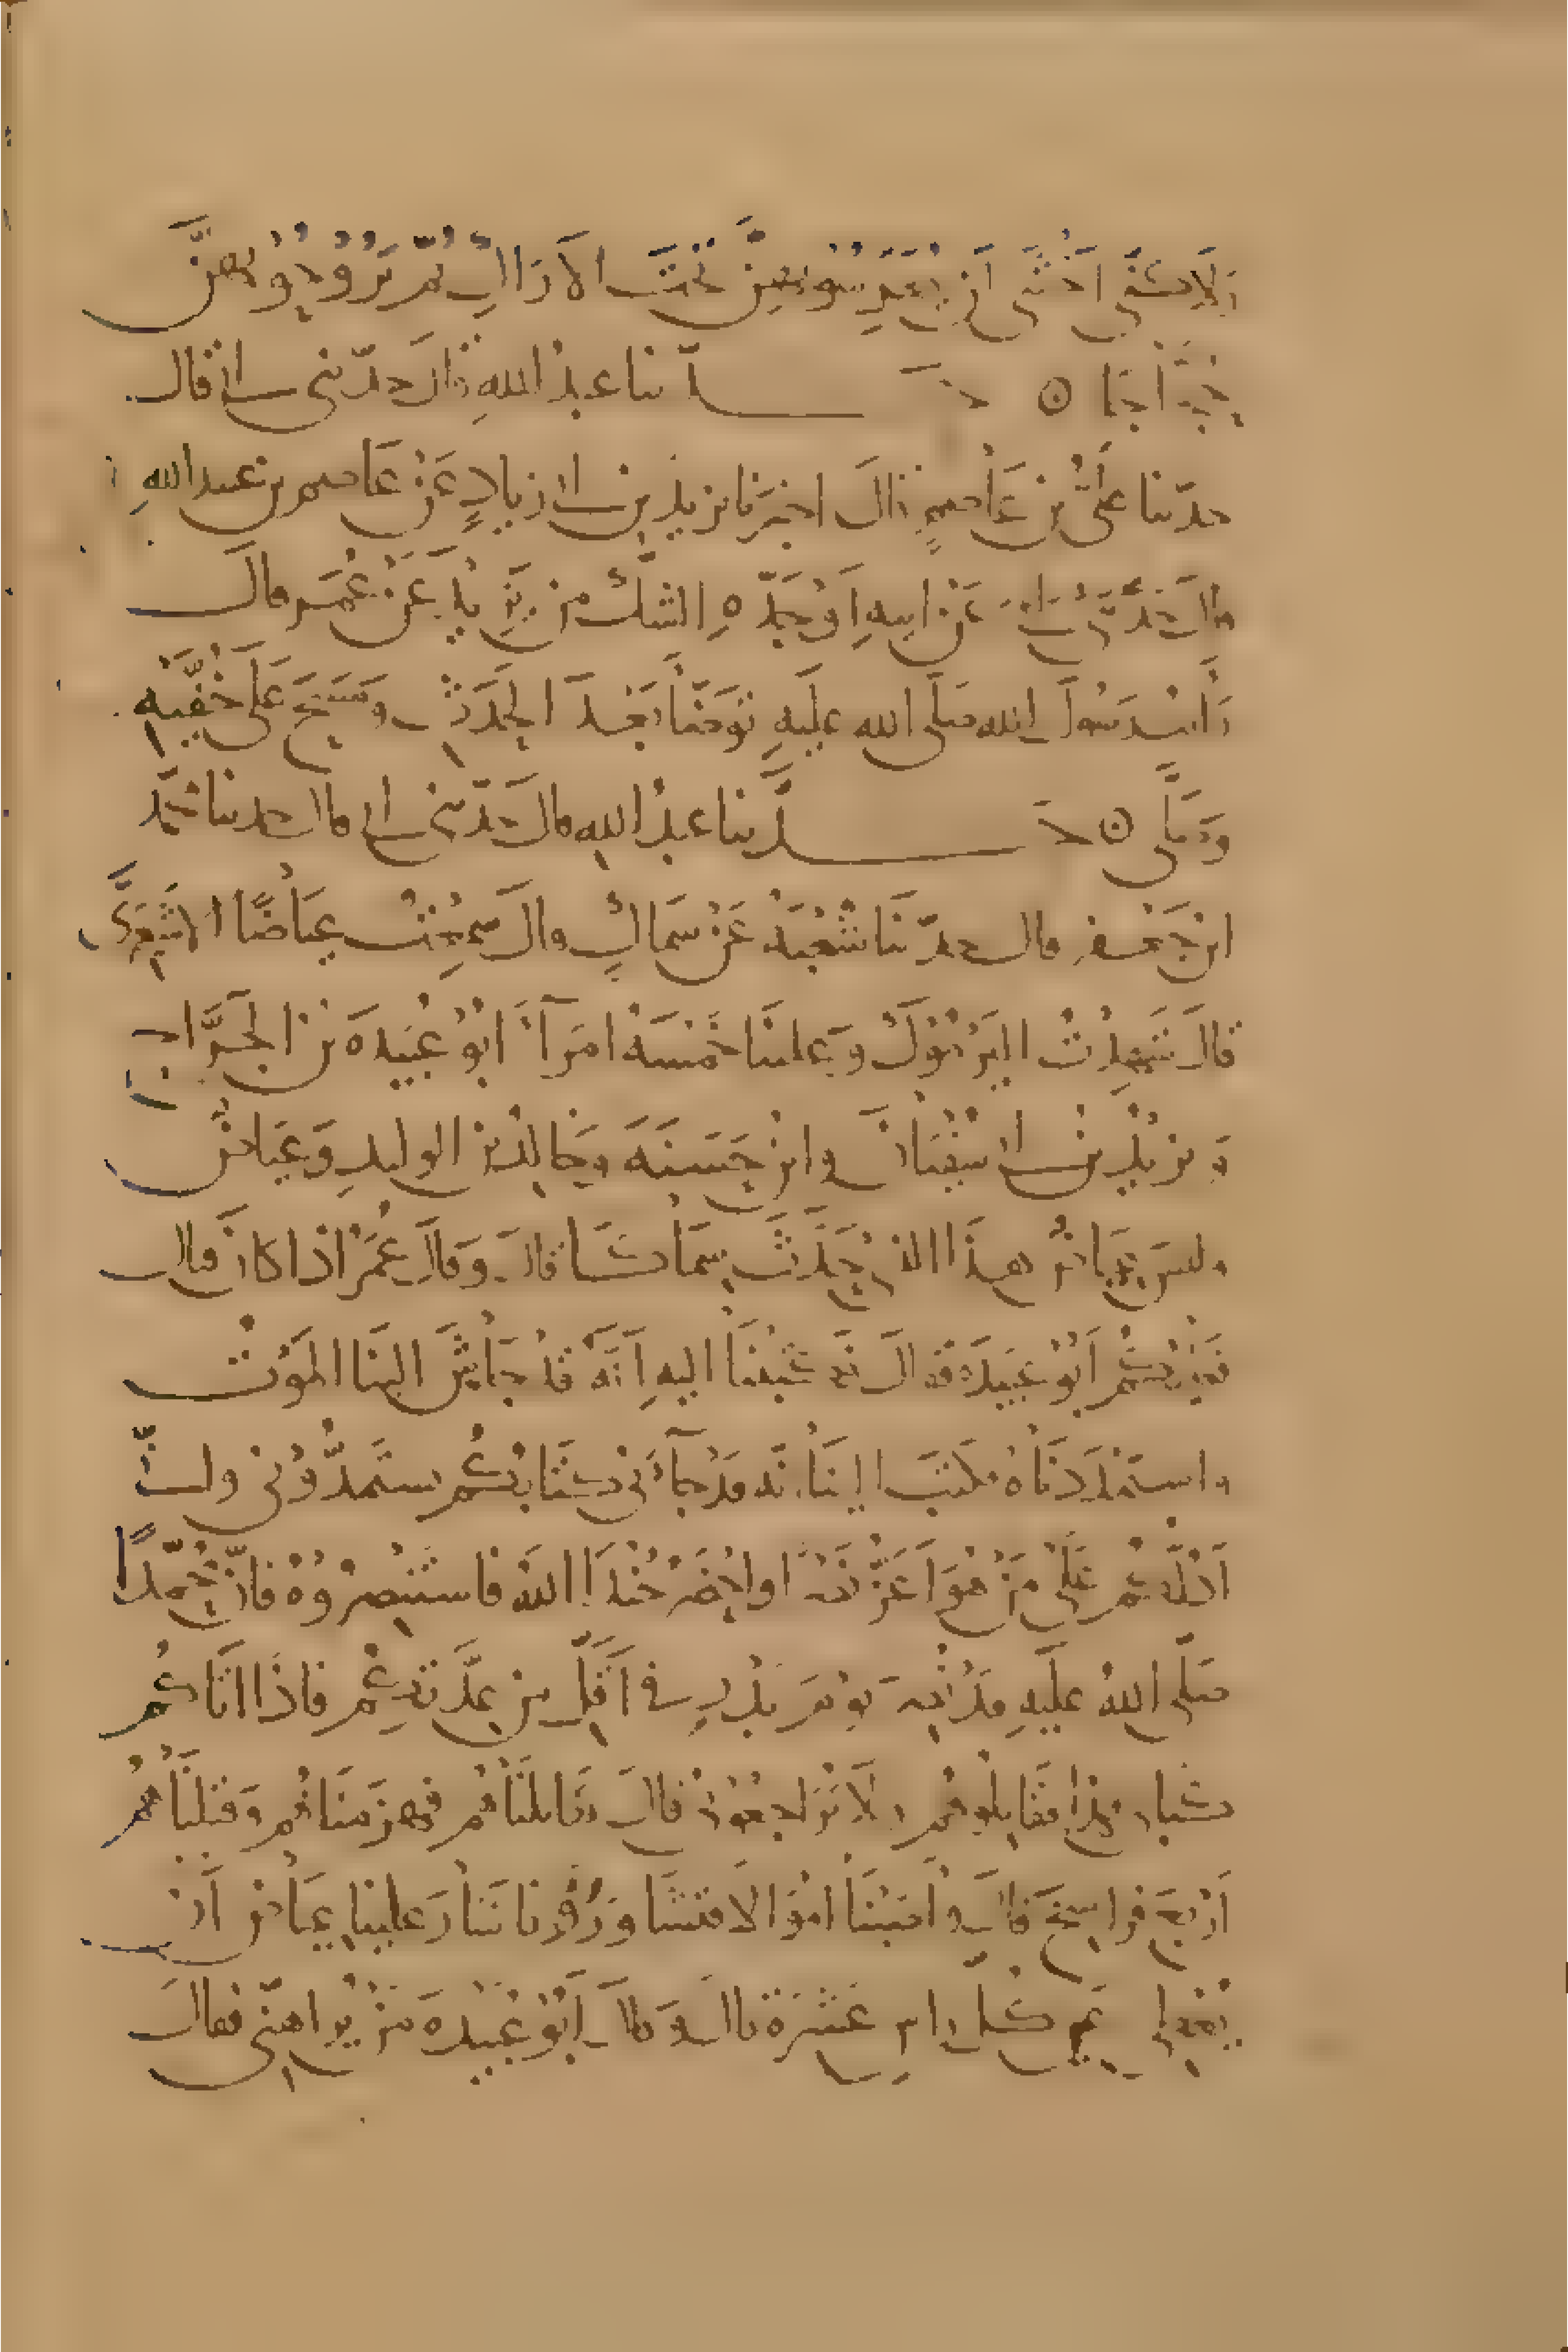 ولكني أخشى أن يعرسوا بهن تحت الأراك ثم يروحوا بهن
حجاجا ۞ حدثنا عبد الله قال حدثني أبي قال
حدثنا علي بن عاصم قال اخبرنا يزيد بن أبي زياد عن عاصم بن عبيد الله
قال عن ابيه أو جده الشك من يزيد عن عمر قال
رأيت رسول الله صلى الله عليه توضأ بعد الحدث ومسح على خفيه
وصلى ۞ حدثنا عبد الله قال حدثني أبي قال حدثنا محمد
ابن جعفر قال حدثنا شعبة عن سماك قال سمعت عياضا الأشعري
قال شهدت اليرموك وعلينا خمسة امرآء ابو عبيدة بن الجراح
ويزيد بن أبي سفيان وابن حسنة وخالد بن الوليد وعياض
وليس عياض هذا الذي حدث سماكا قال وقال عمر اذا كان قتال
فعليكم أبو عبيدة قال فكتبنا اليه أنه قد جاش الينا الموت
واستمددناه فكتب الينا انه قد جآءني كتابكم تستمدوني واني
أدلكم على من هو أعز نصرا واحضر جندا الله فاستنصروه فان محمدا
صلى الله عليه قد نصر يوم بدر في أقل من عدتكم فاذا اتاكم
كتابي هذا فقاتلوهم ولا تراجعوني قال فقاتلناهم فهزمناهم وقتلناهم
أربع فراسخ قال وأصبنا اموالا فتشاورنا فاشار علينا عياض أن
نعطي عن كل راس عشرة قال وقال أبو عبيدة من يراهني فقال